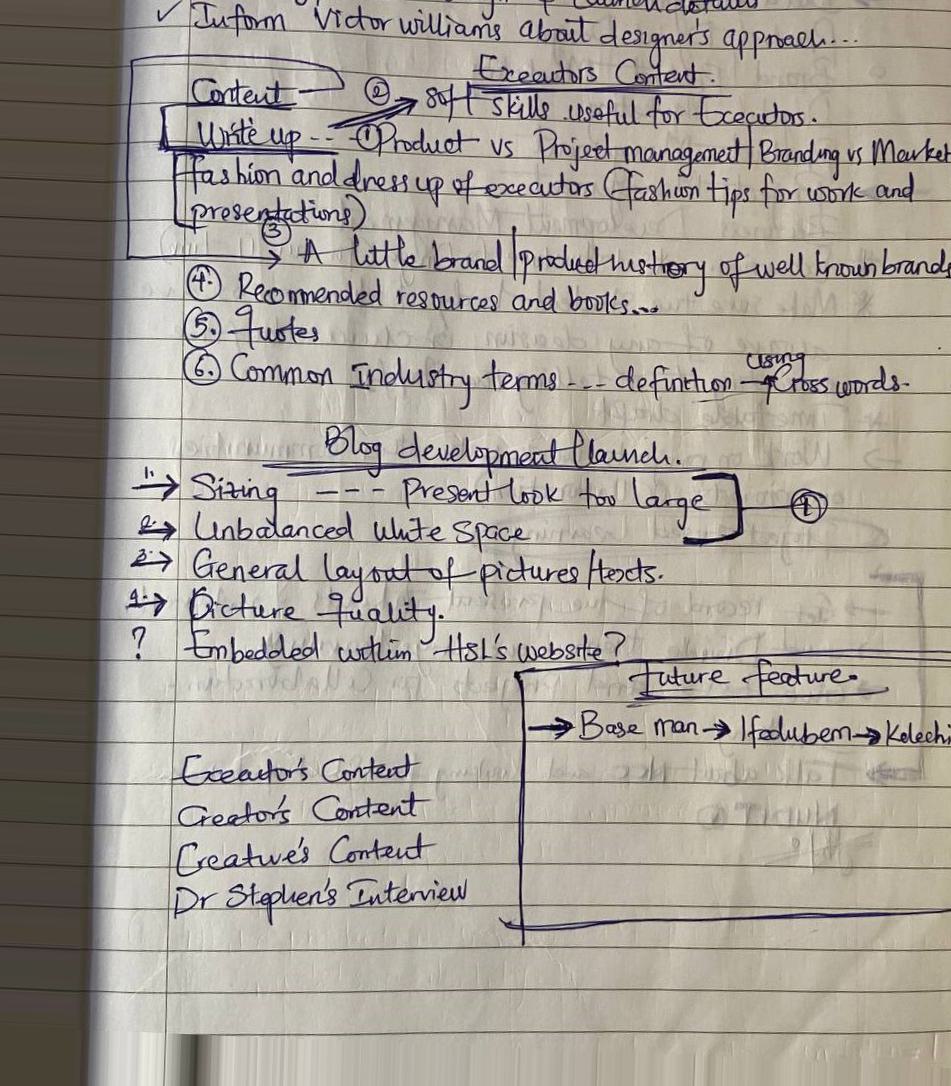 ✓ Inform Victor williams about designer's approach...
Executors Content.
Content
② → Soft skills useful for Executors.
Write up -- ① Product vs Project management | Branding vs Market
fashion and dress up of executors (fashion tips for work and
presentations)
③
→ A little brand/product history of well known brands
④. Recommended resources and books...
⑤. Quotes
⑥. Common Industry terms --- definition → using Cross words.
Blog development & launch.
1. → Sizing --- Present look too large ①
2. → Unbalanced White Space
3. → General layout of pictures/texts.
4. → Picture Quality.
? Embedded within HSL's website?
Future feature.
→ Base man → Ifedubem → Kelechi
Executor's Content
Creator's Content
Creative's Content
Dr Stephen's Interview